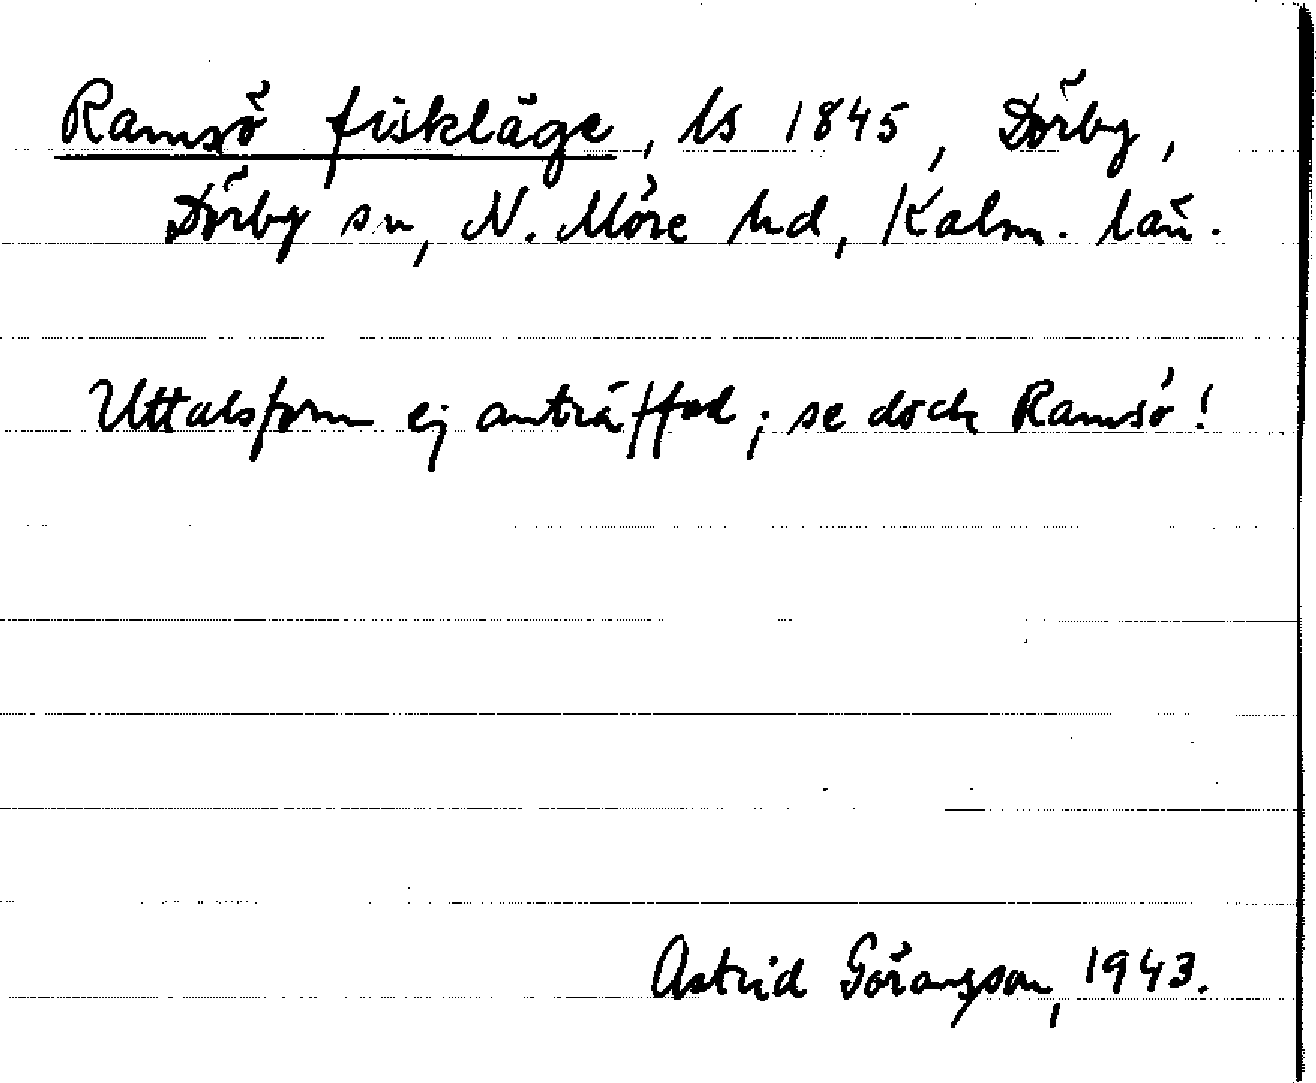 Ramsö fiskläge, ls 1845, Dörby,
Dörby sn, N. Möre hd, Kalm. län.
Uttalsform ej anträffad; se dock Ramsö!
Astrid Göransson, 1943.